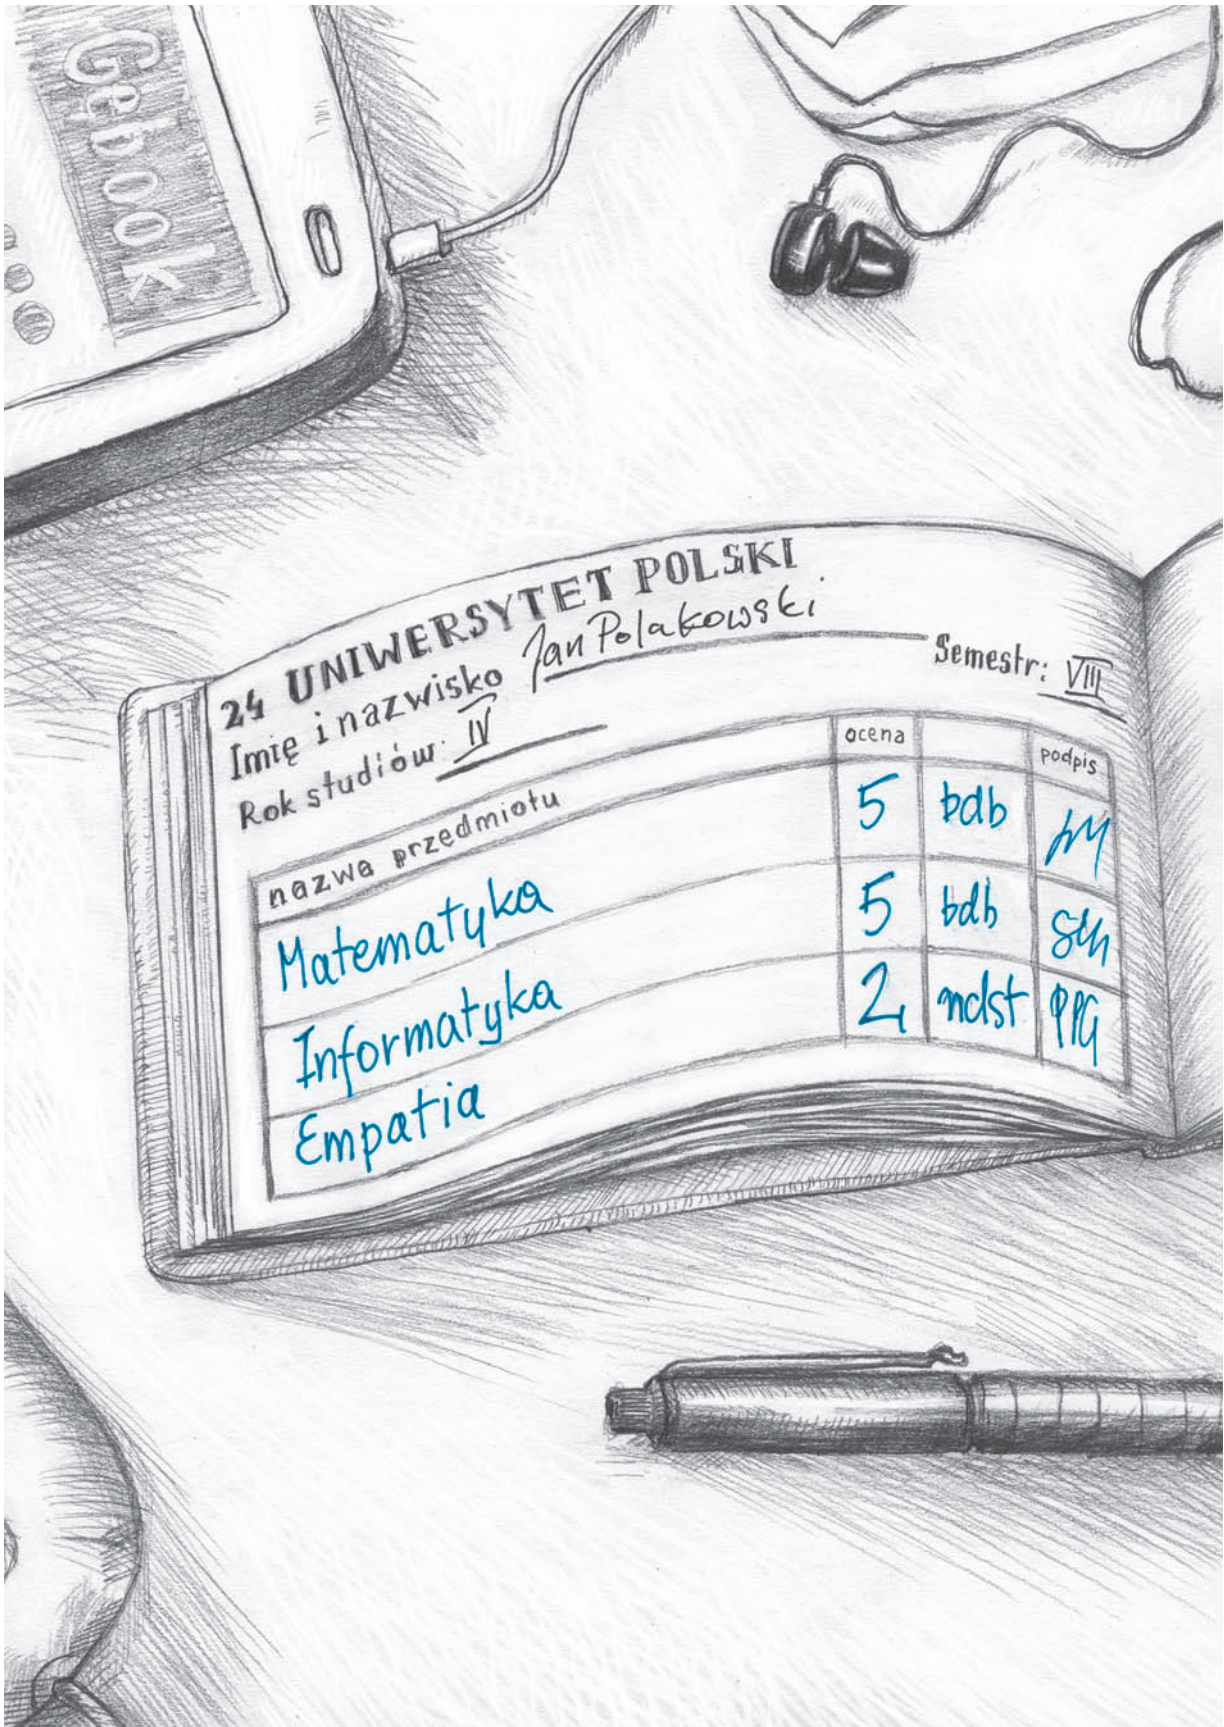 Gębook
24 UNIWERSYTET POLSKI
Imię i nazwisko Jan Polakowski
Rok studiów: IV
Semestr: VIII
nazwa przedmiotu ocena podpis
Matematyka 5 bdb
Informatyka 5 bdb
Empatia 2 ndst PPG